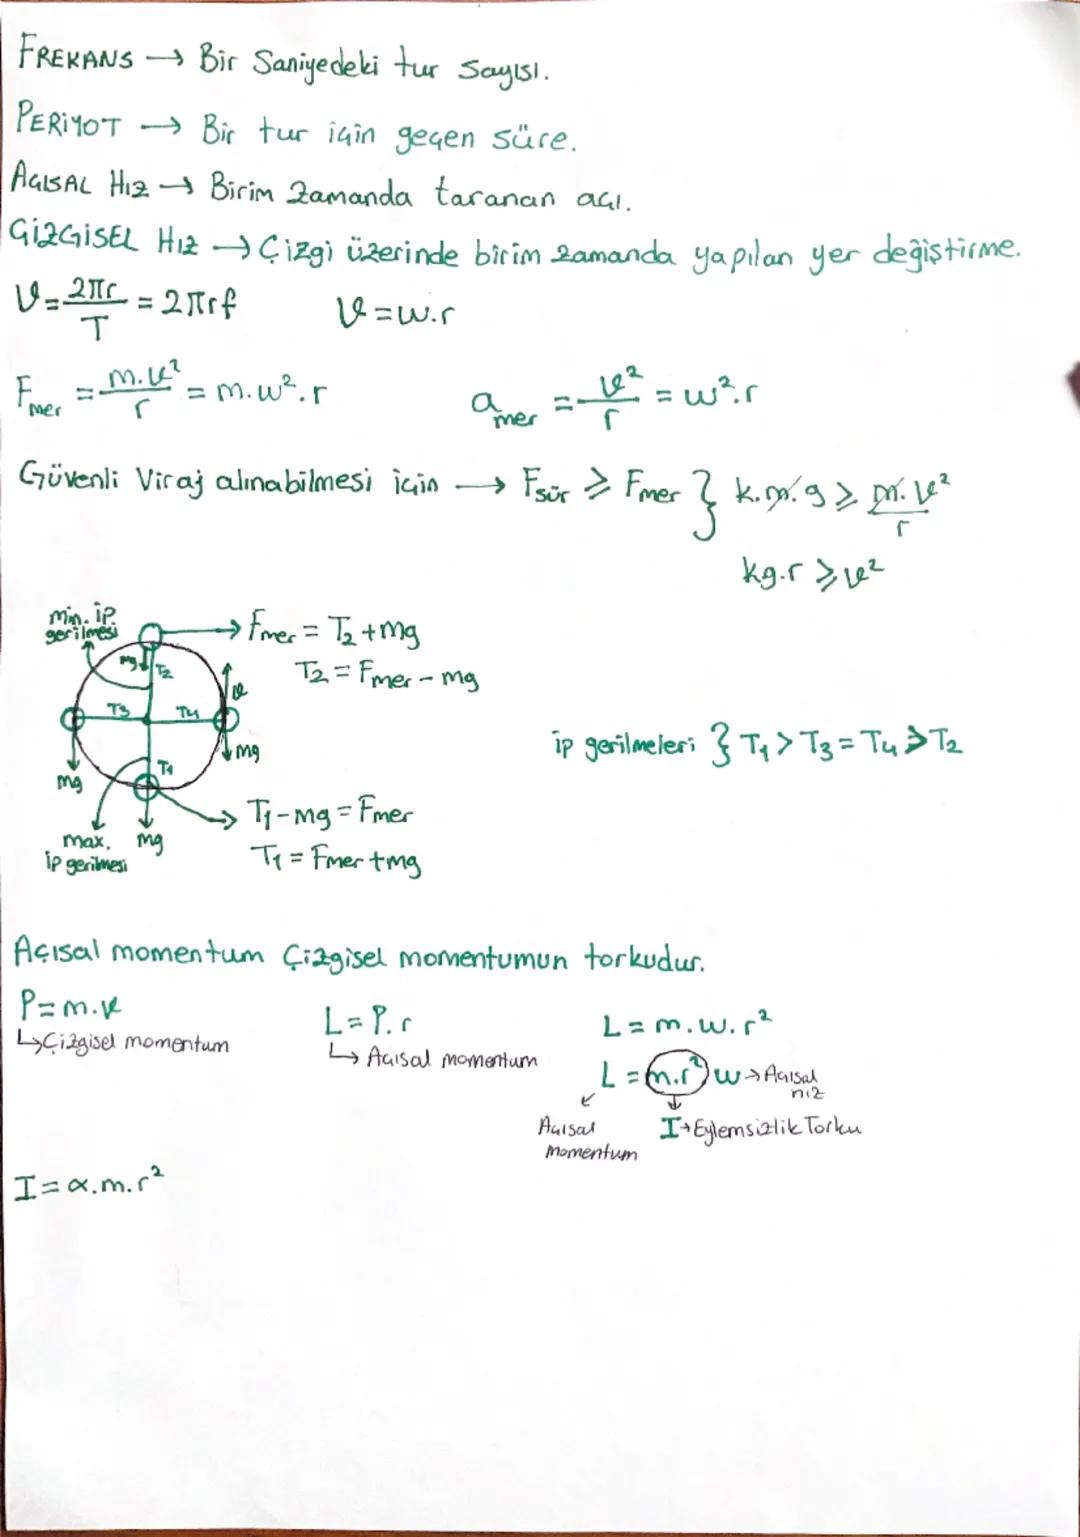 FREKANS → Bir Saniyedeki tur sayısı.
PERİYOT → Bir tur için geçen süre.
AÇISAL HIZ → Birim zamanda taranan açı.
ÇİZGİSEL HIZ → Çizgi üzerinde birim zamanda yapılan yer değiştirme.
V = 2πr/T = 2πrf    V = w.r
Fmer = m.v²/r = m.w².r    amer = v²/r = w².r
Güvenli Viraj alınabilmesi için → Fsür ≥ Fmer } k.m.g ≥ m.v²/r
kg.r ≥ v²
min. ip gerilmesi
Fmer = T2 + mg
mg T2
T2 = Fmer - mg
v
T3 T4
mg
mg
ip gerilmeleri } T1 > T3 = T4 > T2
T1
T1 - mg = Fmer
max. ip gerilmesi
mg
T1 = Fmer + mg
Açısal momentum Çizgisel momentumun torkudur.
P = m.v    L = P.r    L = m.w.r²
↳ Çizgisel momentum    ↳ Açısal momentum
L = m.r² w → Açısal hız
Açısal momentum    I → Eylemsizlik Torku
I = α.m.r²